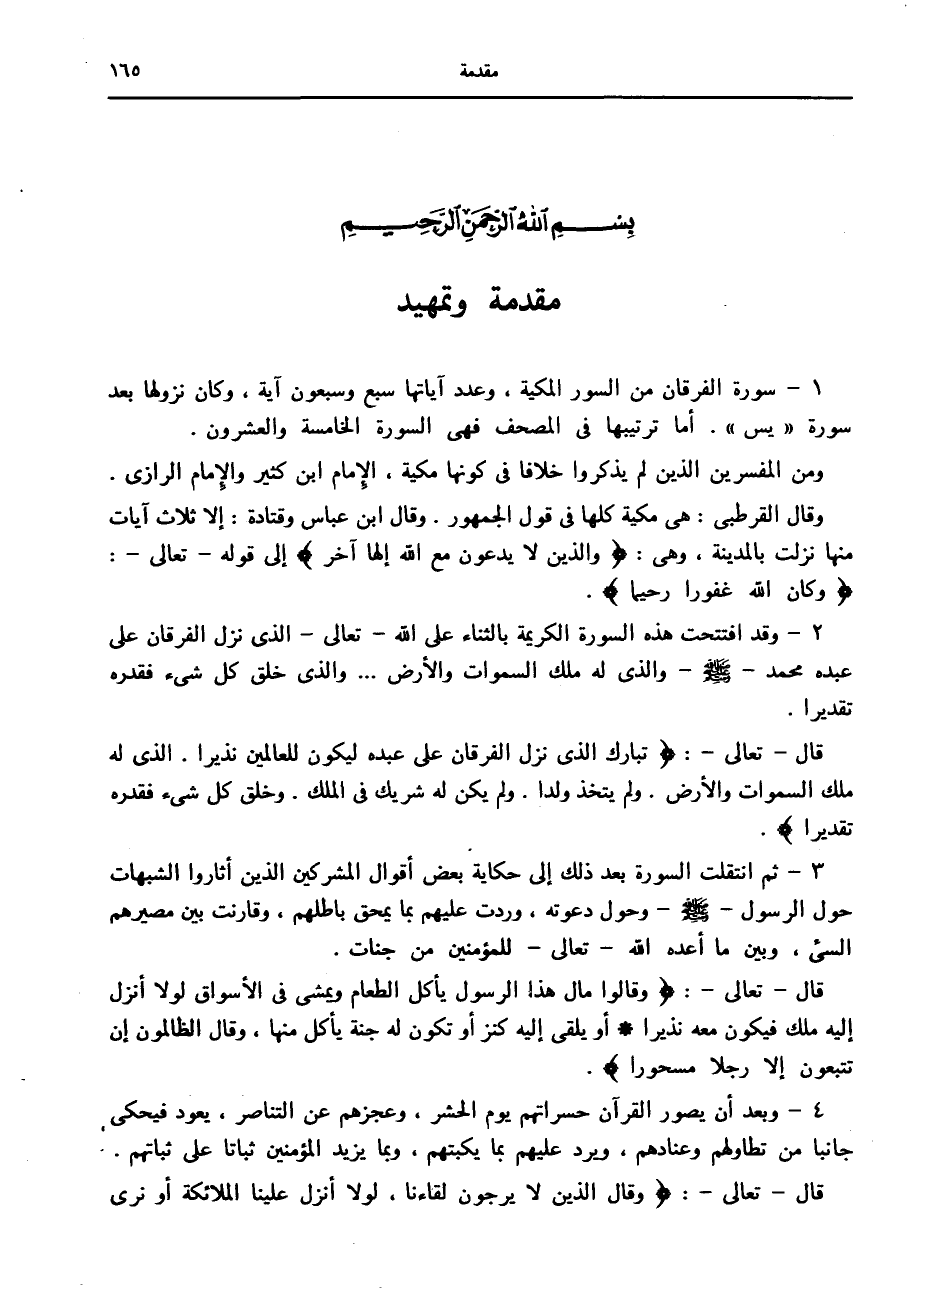 مقدمة ١٦٥
بسم الله الرحمن الرحيم
مقدمة وتمهيد
١ - سورة الفرقان من السور المكية ، وعدد آياتها سبع وسبعون آية ، وكان نزولها بعد
سورة « يس » . أما ترتيبها فى المصحف فهى السورة الخامسة والعشرون .
ومن المفسرين الذين لم يذكروا خلافا فى كونها مكية ، الإمام ابن كثير والإمام الرازى .
وقال القرطبى : هى مكية كلها فى قول الجمهور . وقال ابن عباس وقتادة : إلا ثلاث آيات
منها نزلت بالمدينة ، وهى : ﴿ والذين لا يدعون مع الله إلها آخر ﴾ إلى قوله - تعالى - :
﴿ وكان الله غفورا رحيما ﴾ .
٢ - وقد افتتحت هذه السورة الكريمة بالثناء على الله - تعالى - الذى نزل الفرقان على
عبده محمد - ﷺ - والذى له ملك السموات والأرض ... والذى خلق كل شىء فقدره
تقديرا .
قال - تعالى - : ﴿ تبارك الذى نزل الفرقان على عبده ليكون للعالمين نذيرا . الذى له
ملك السموات والأرض . ولم يتخذ ولدا . ولم يكن له شريك فى الملك . وخلق كل شىء فقدره
تقديرا ﴾ .
٣ - ثم انتقلت السورة بعد ذلك إلى حكاية بعض أقوال المشركين الذين أثاروا الشبهات
حول الرسول - ﷺ - وحول دعوته ، وردت عليهم بما يمحق باطلهم ، وقارنت بين مصيرهم
السىّء ، وبين ما أعده الله - تعالى - للمؤمنين من جنات .
قال - تعالى - : ﴿ وقالوا مال هذا الرسول يأكل الطعام ويمشى فى الأسواق لولا أنزل
إليه ملك فيكون معه نذيرا * أو يلقى إليه كنز أو تكون له جنة يأكل منها ، وقال الظالمون إن
تتبعون إلا رجلا مسحورا ﴾ .
٤ - وبعد أن يصور القرآن حسراتهم يوم الحشر ، وعجزهم عن التناصر ، يعود فيحكى
جانبا من تطاولهم وعنادهم ، ويرد عليهم بما يكبتهم ، وبما يزيد المؤمنين ثباتا على ثباتهم .
قال - تعالى - : ﴿ وقال الذين لا يرجون لقاءنا ، لولا أنزل علينا الملائكة أو نرى